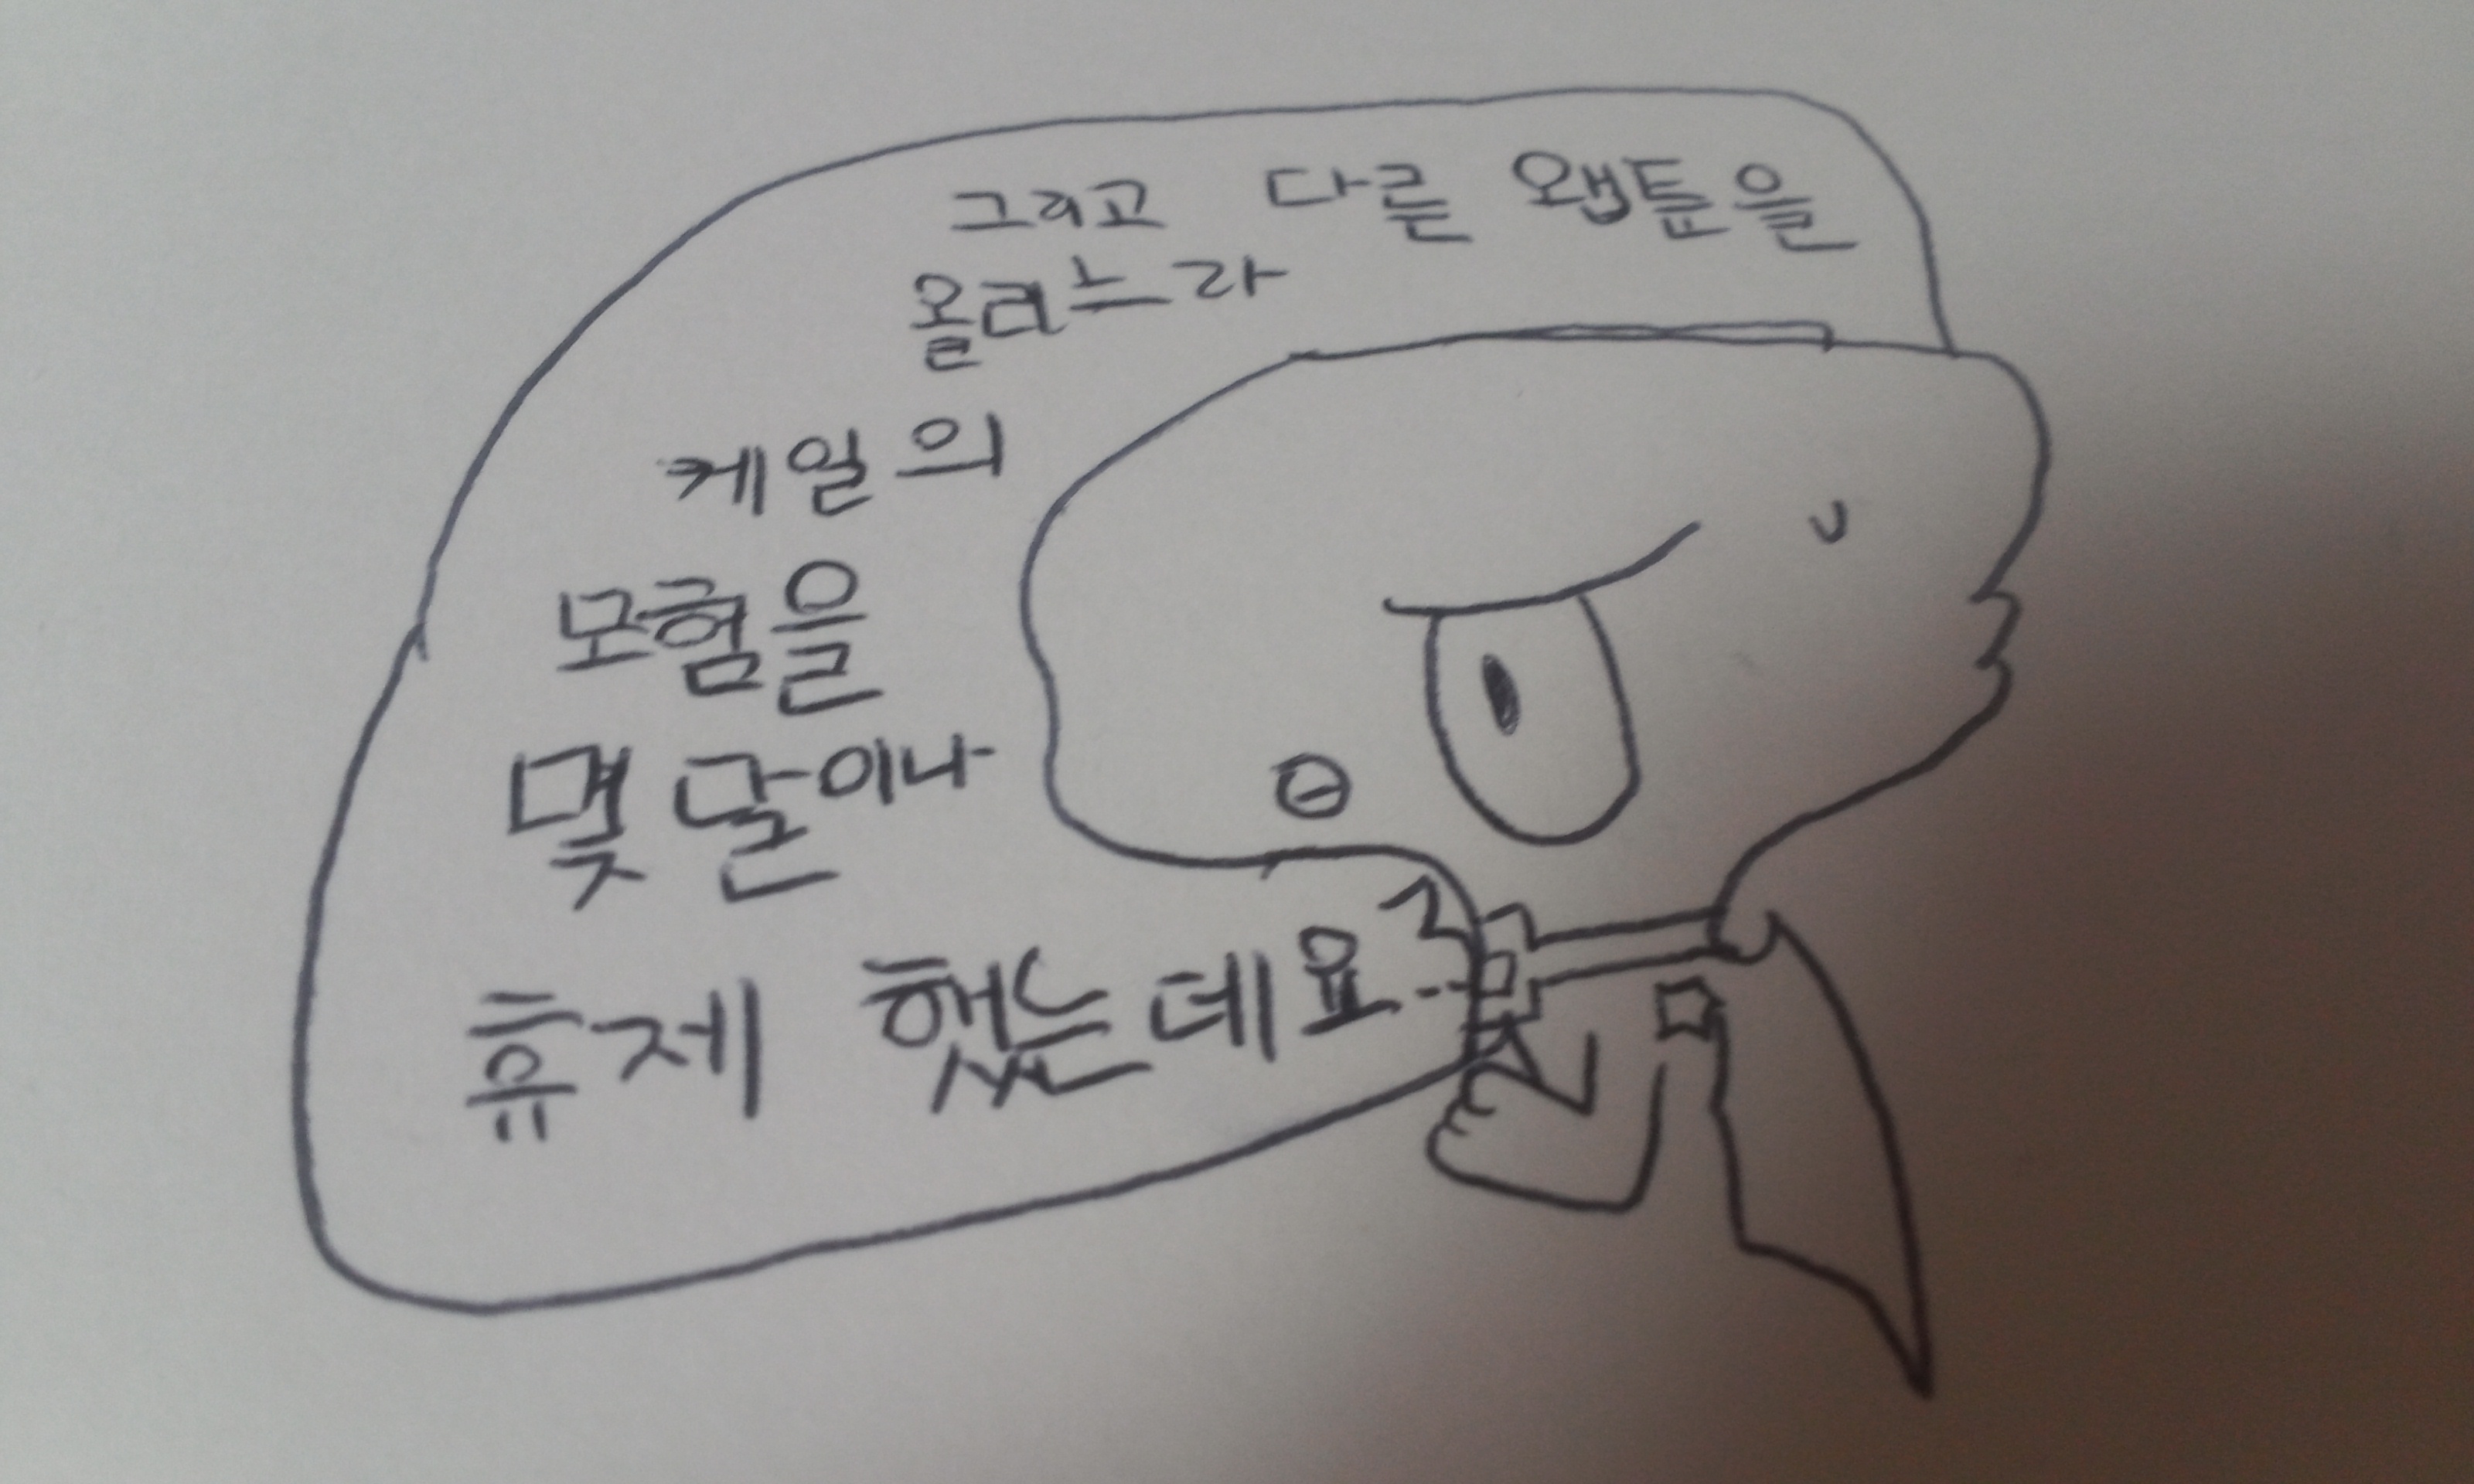 그리고 다른 왭툰을
올리느라
케일의
모험을
몇 달이나
휴제 했는데요..